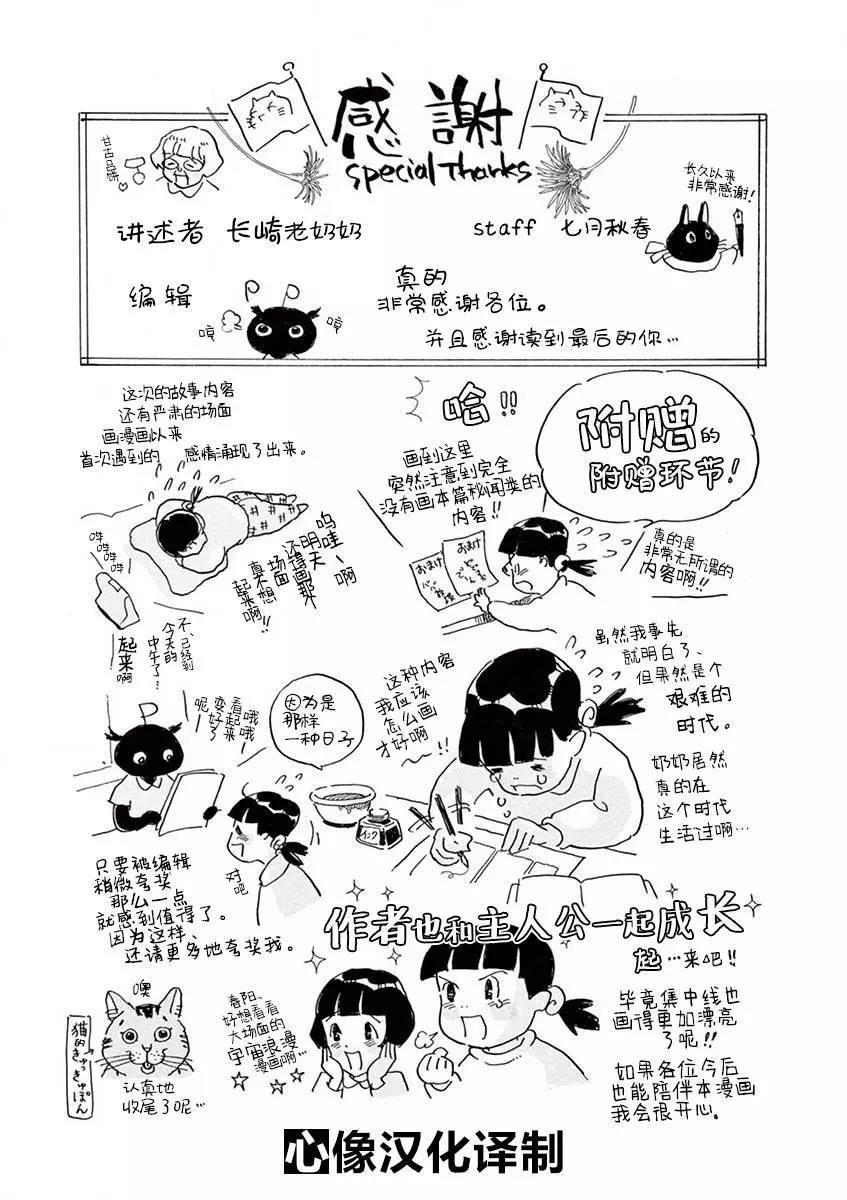 感謝
special Thanks
讲述者 长崎老奶奶
staff 七月秋春
长久以来
非常感谢!
编辑
哼
哼
真的
非常感谢各位。
并且感谢读到最后的你…
附赠的
附赠环节!
真的是
非常无所谓的
内容啊!!
哈!!
画到这里
突然注意到完全
没有画本篇秘闻类的
内容!!
おまけ
おまけ
这次的故事内容
还有严肃的场面
画漫画以来
首次遇到的 感情涌现了出来。
呜哇~啊
明天
还得画那
场面
真不想
起来啊!!
哔
哔
哔
哔
不,已经到
今天的
中午了…
起来啊
虽然我事先
就明白了、
但果然是个
艰难的
时代。
奶奶居然
真的在
这个时代
生活过啊…
这种内容
我应该
怎么画
才好啊
インク
因为是
那样
一种日子
看起来
变好了
哦哦
呢
对吧
只要被编辑
稍微夸奖
那么一点
就感到值得了。
因为这样、
还请更多地夸奖我。
作者也和主人公一起成长
起…来吧!!
毕竟集中线也
画得更加漂亮
了呢!!
如果各位今后
也能陪伴本漫画
我会很开心。
春阳、
好想看看
大场面的
宇宙浪漫
漫画啊…
噢
认真地
收尾了呢…
猫的きゅっきゅぽん
心像汉化译制